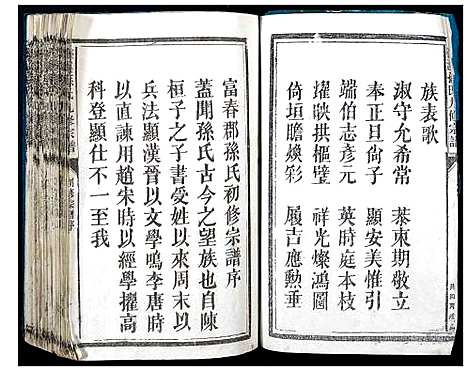 族表歌
淑守允希常　棻東期敬立
奉正旦尙子　顯安美惟引
端伯志彥元　英時庭本枝
耀映拱樞璧　祥光燦鴻圖
倚垣瞻煥彩　履吉應勲垂
富春郡孫氏初修宗譜序
蓋聞孫氏古今之望族也自陳
桓子之子書受姓以來周末以
兵法顯漢晉以文學鳴李唐時
以直諫用趙宋時以經學擢高
科登顯仕不一至我